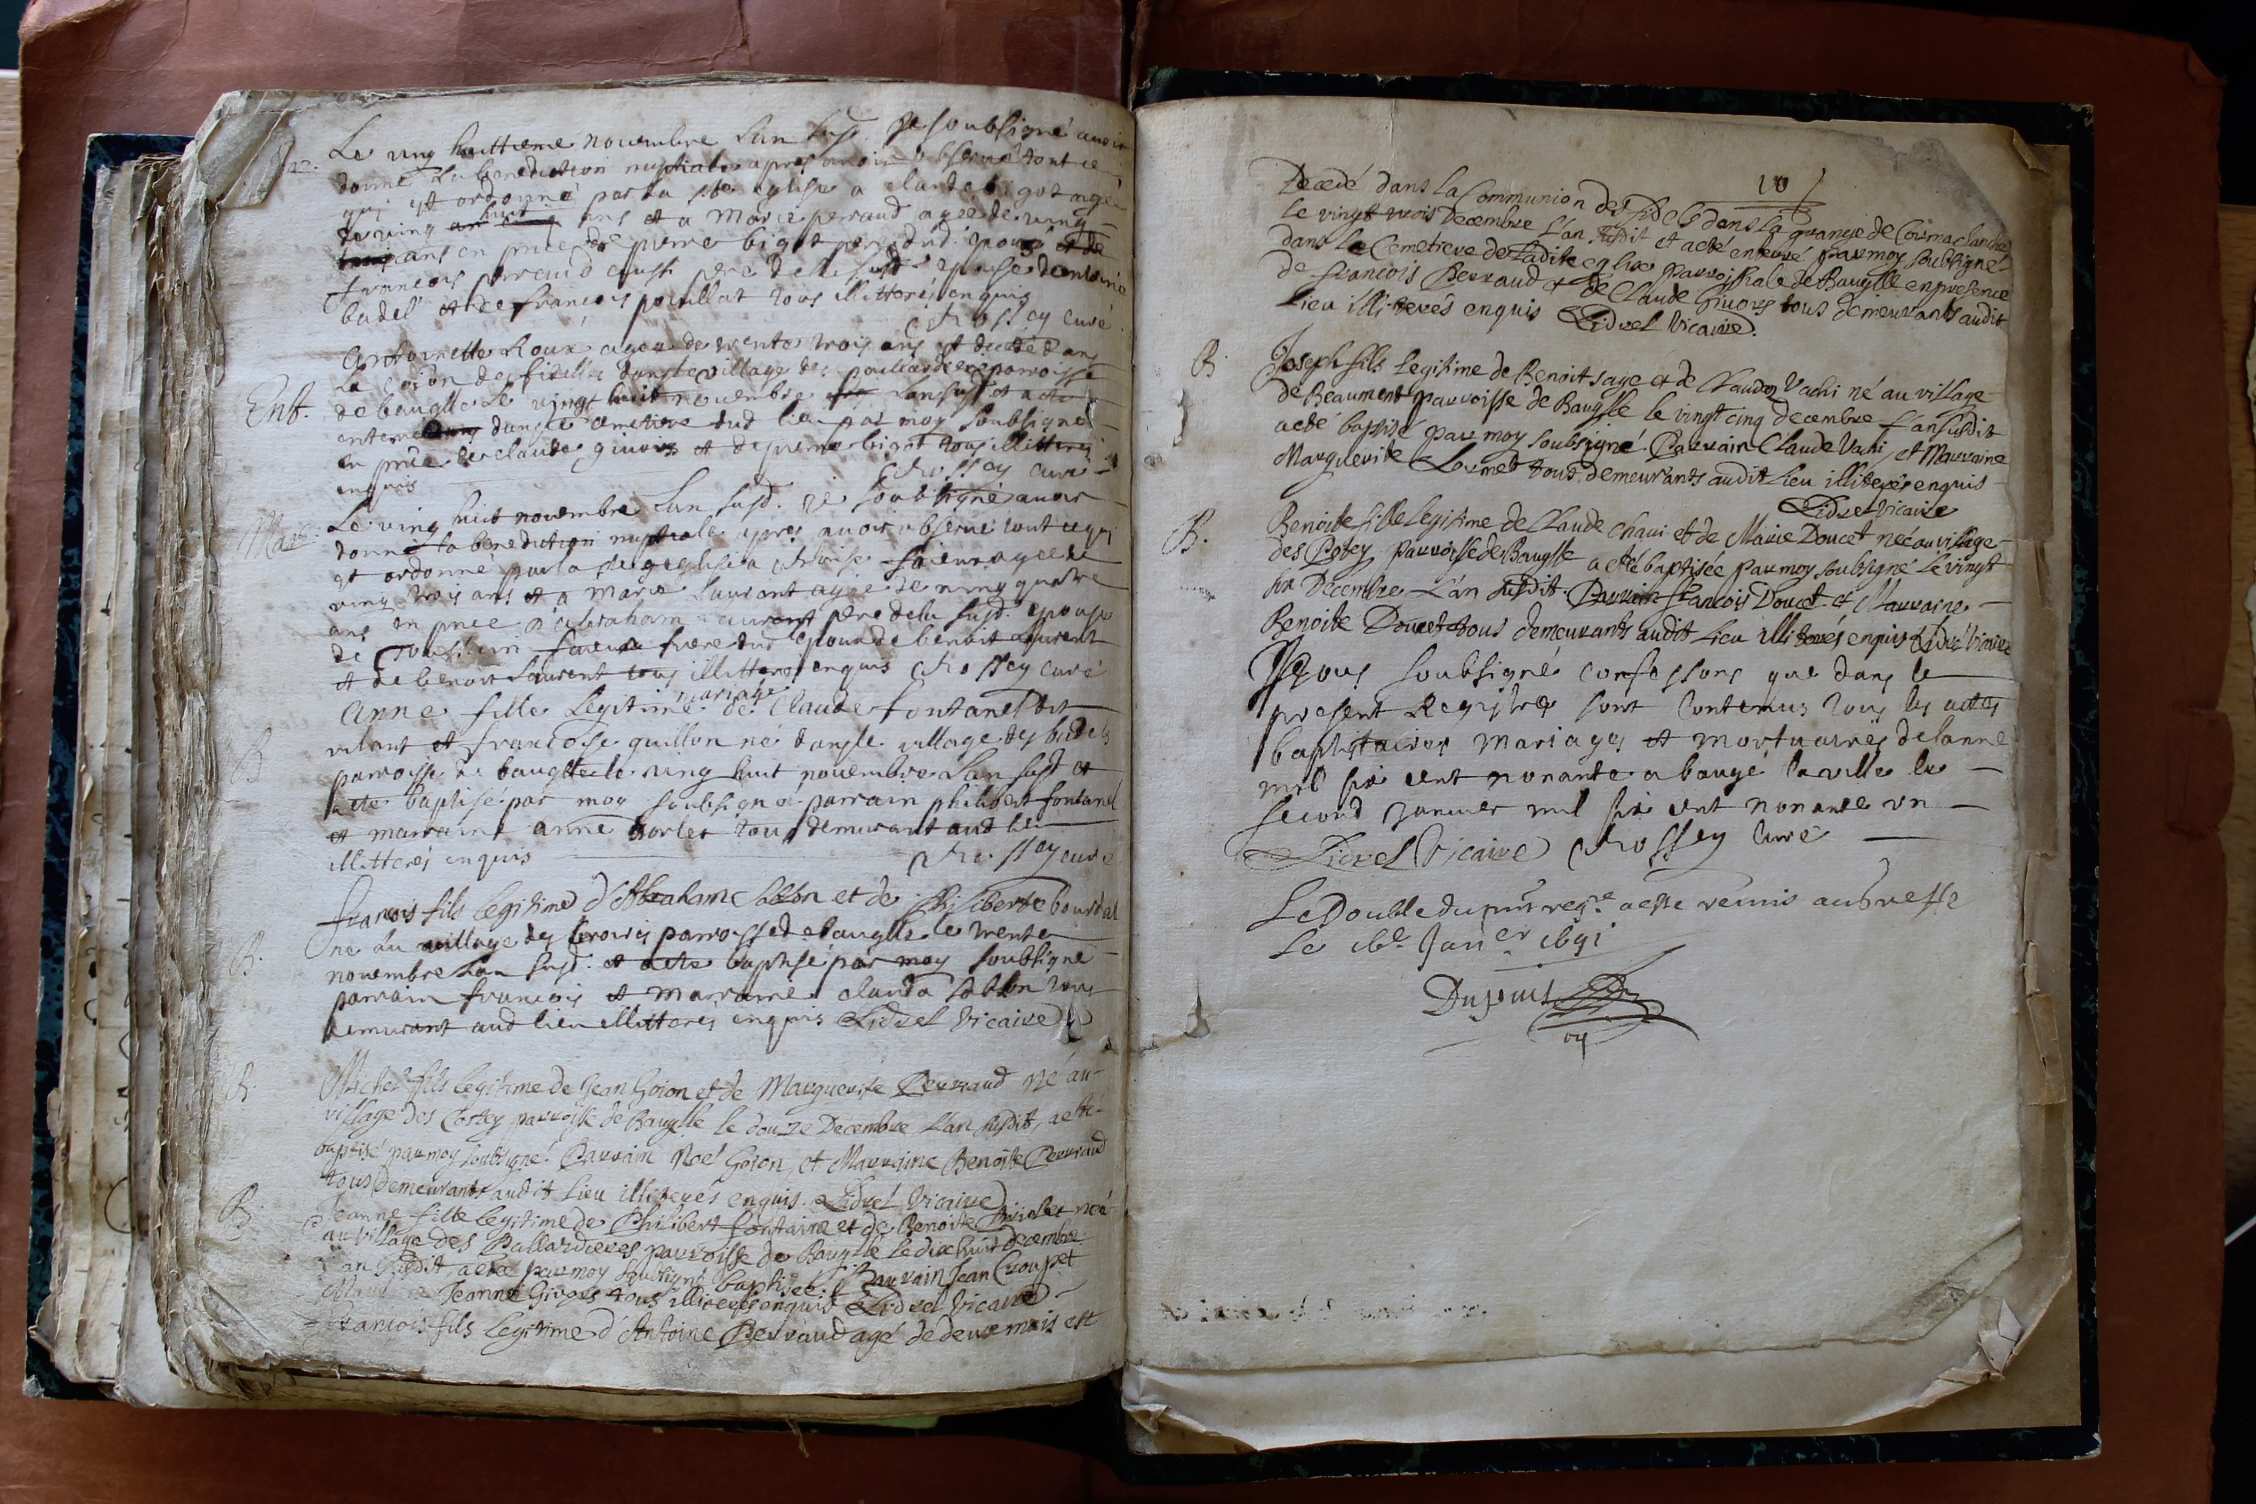 Le ving huittieme novembre Lan susd. Je soubsigné avoir
donné la benediction nuptiale apres avoir observé tout ce
qui est ordonné par la ste eglise a claude bigot agé
de ving huit ans et a Marie perraud agee de ving
ans en pnce de pierre bigot pere dud. epoux et de
francois perraud aussi pere de la susd. epouse dantoine
badel et de francois pouillat tous illitterés enquis
Rossey curé
Ent.
Antoinette Roux agee de trente trois ans est decedé dans
la coion des fidelles dans le village des paillardieres parroisse
de baugsle le vingt huit novembre Lan susd et a ete
enterré dans le cimetiere dud lieu par moy soubsigné
en pnce de claude givois et de pierre bigot tous illitteres
enquis Rossey curé
Mar.
Le ving huit novembre Lan susd. Je soubsigné avoir
donné la benediction nuptiale apres avoir observé tout ce qui
est ordonné par la ste eglise a agee de
ving trois ans et a Marie Laurant agée de ving quatre
ans en pnce d'abraham Laurent pere de la susd. epouse
de frere dud epoux de benoit Laurent
et de benoit Laurent tous illitteres enquis Rossey curé
mariage
B
Anne fille Legitime de Claude fontanel dit
vilant et francoise guillon ne dans le village des badels
parroisse de baugsle le ving huit novembre Lan susd et
a ete baptisé par moy soubsigné parrain philibert fontanel
et marraine anne borlet tous demurant aud lieu
illitterés enquis Rossey curé
B.
francois fils legitime d'Abraham Sablon et de Philiberte bourdal
ne au village des broires parroisse de baugsle le trente
novembre Lan susd. et a ete baptisé par moy soubsigné
parrain francois et marraine clauda Sablon tous
demurant aud lieu illitteres enquis Lidrel Vicaire
B.
Michel fils legitime de Jean Goion et de Marguerite Perraud né au
village des Cotey parroisse de Baugsle le douze Decembre L'an susdit, a esté
baptisé par moy soubsigné. Parrain Noel Goion, et Marraine Benoite Perraud
tous Demeurants audit Lieu illiterés enquis. Lidrel Vicaire
B.
Jeanne fille legitime de Philibert fontaine et de Benoite Briolet née
au village des Pallardieres parroisse de Baugsle le dix huit decembre
L'an susdit a eté par moy soubsigné baptisee. Parrain Jean Croupet
Marraine Jeanne Givors tous illiterés enquis Lidrel Vicaire
Francois fils Legitime d'Antoine Perraud agé de deux mois est
10
Decedé dans la Communion des Fideles dans la grange de Cormaclanche
le vingt trois Decembre L'an susdit et a eté enterré par moy soubsigné
dans le Cemetiere de Ladite eglise parroissiale de Baugsle en presence
de francois Perraud et de Claude Givors tous demeurants audit
Lieu illiterés enquis Lidrel Vicaire.
B.
Joseph fils Legitime de Benoit sage et de Clauda Vachi né au village
de Beaumont parroisse de Baugsle le vingt cinq decembre l'an susdit
a eté baptisé par moy soubsigné. Parrain Claude Vachi, et Marraine
Marguerite Lormet tous demeurants audit Lieu illiterés enquis
Lidrel Vicaire
B.
Benoite fille legitime de Claude chavi et de Marie Doucet née au village
des Cotey parroisse de Baugsle a eté baptisee par moy soubsigné le vingt
six Decembre L'an susdit. Parrain francois Doucet et Marraine
Benoite Doucet tous demeurants audit Lieu illiterés enquis Lidrel Vicaire
Nous soubsigné confessons que dans le
present Registre sont contenus tous les actes
baptistaires mariages et mortuaires de lanne
mil six cent nonante a baugé la ville le
second janvier mil six cent nonante un
Lidrel Vicaire Rossey Curé
Le Double du pnt regre a esté remis au greffe
Le 16e Janer 1691
Dupuis